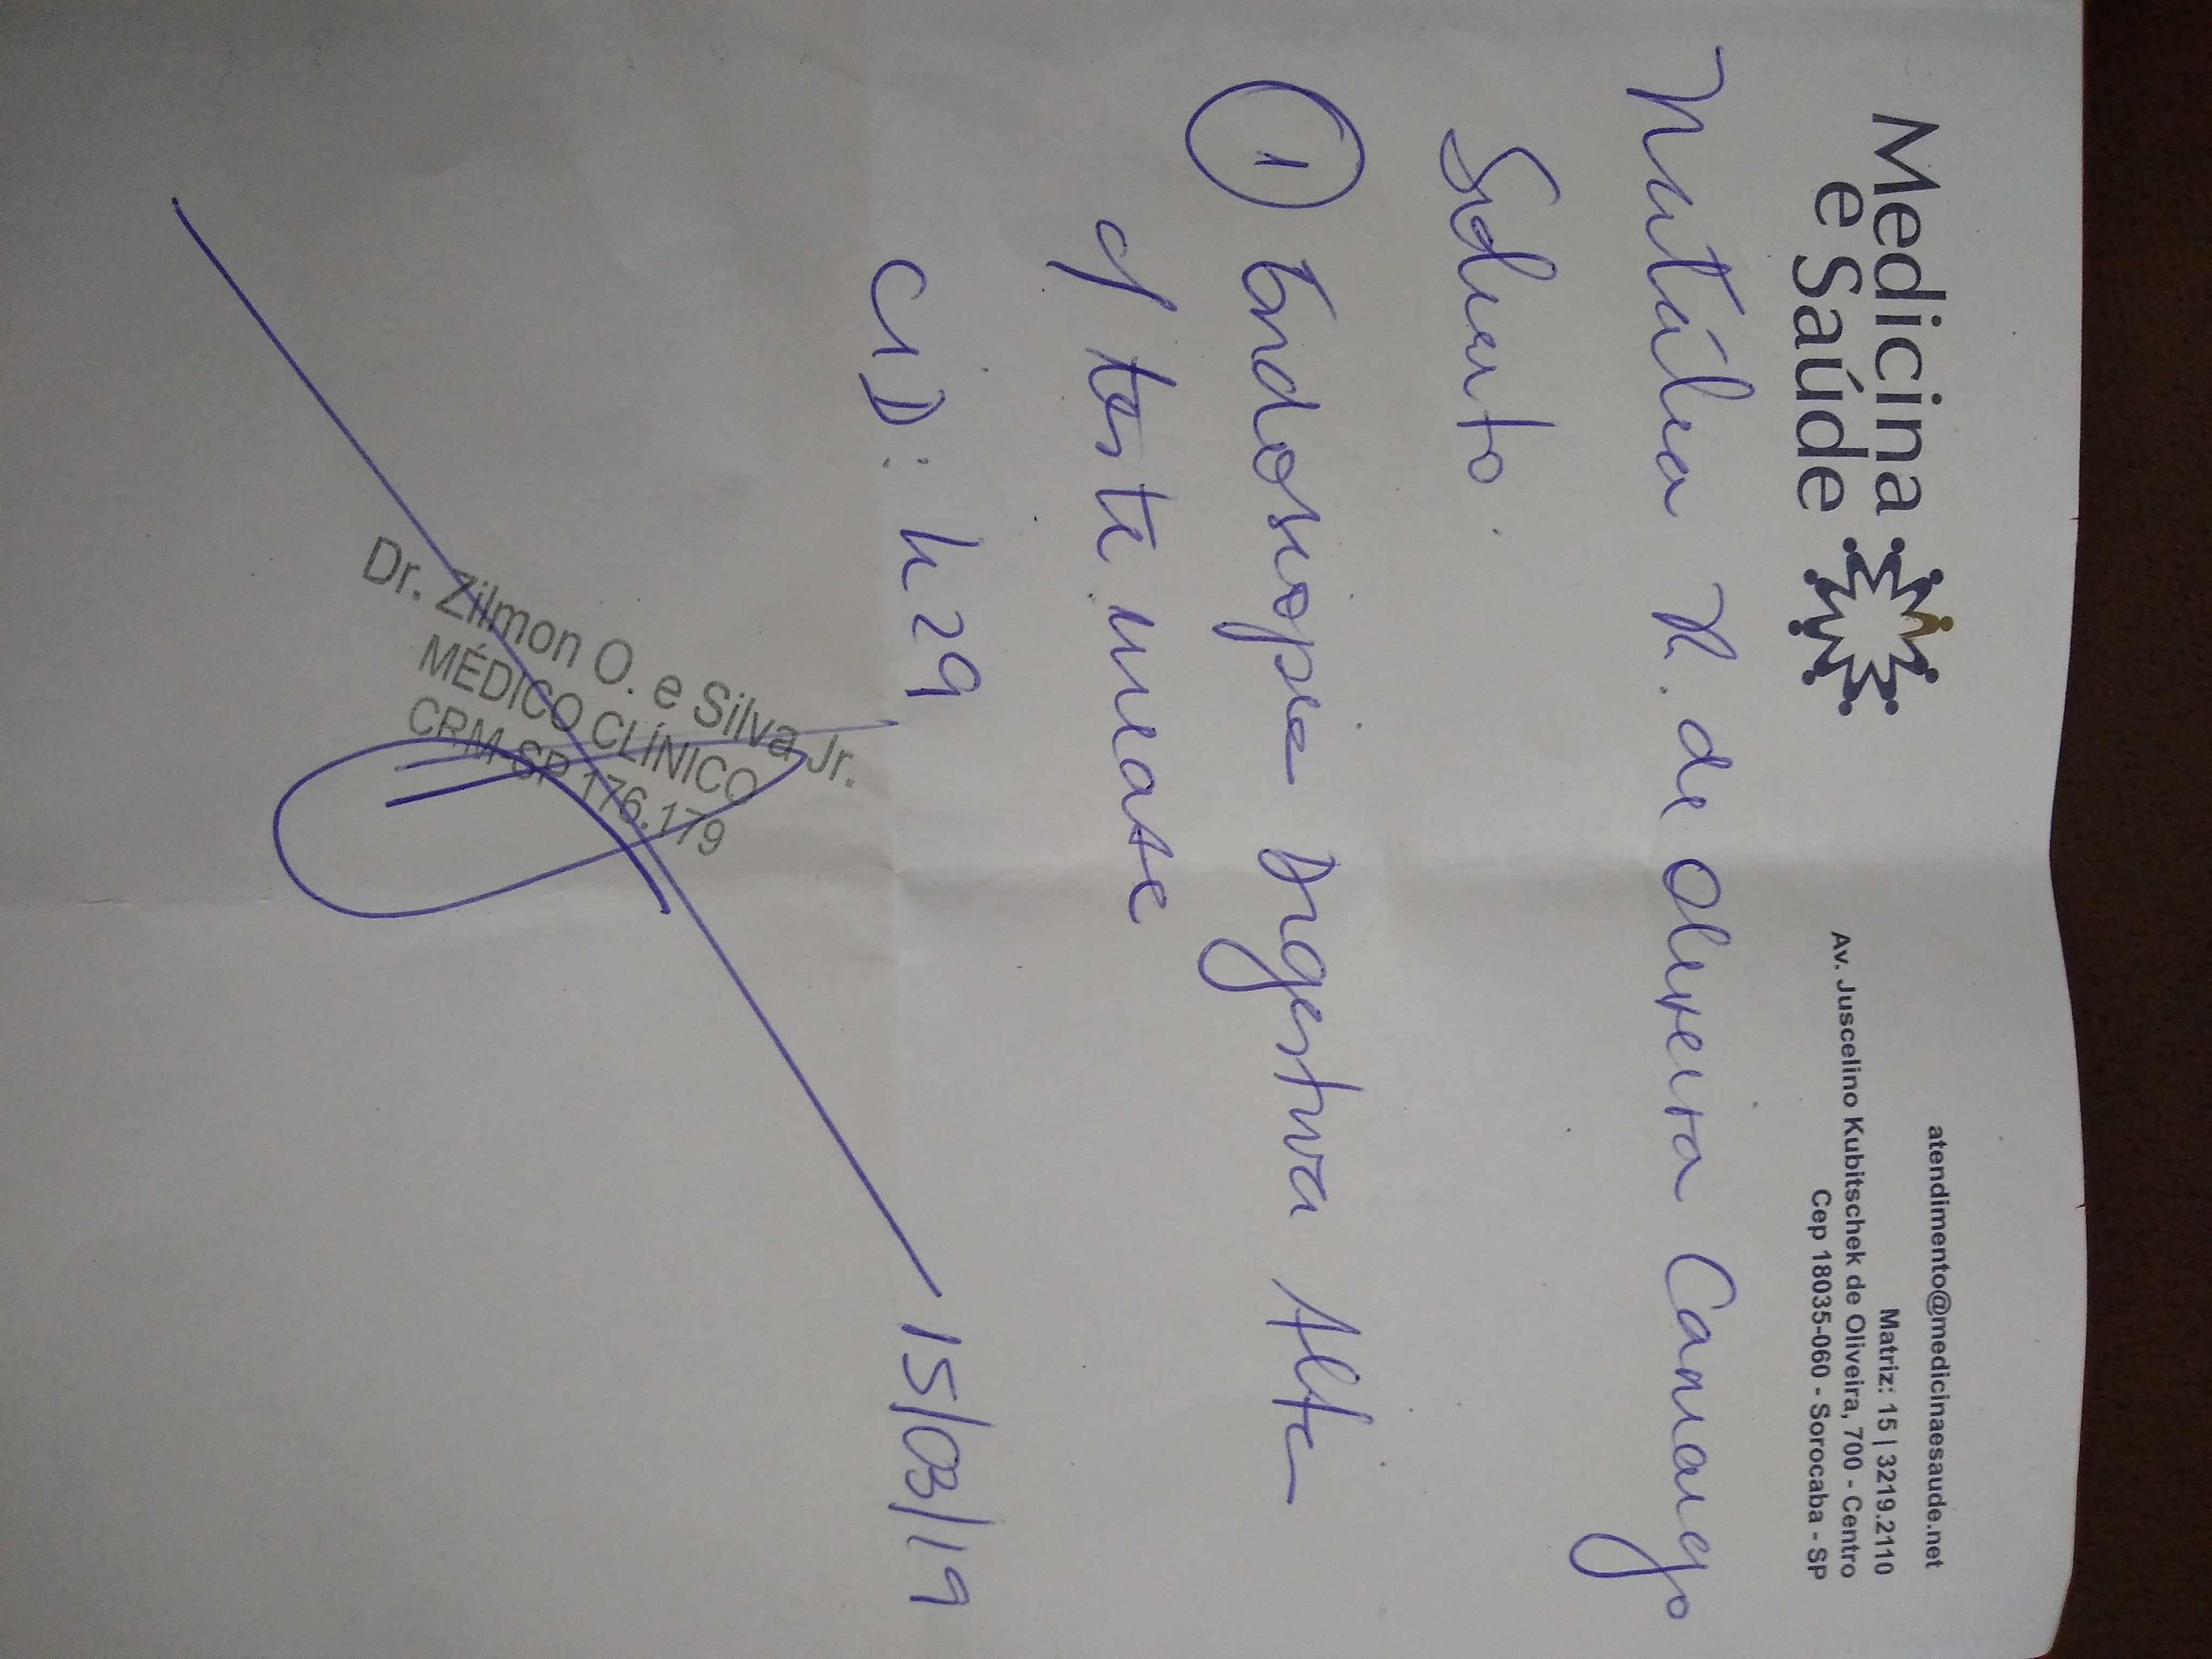 Medicina
e Saúde
atendimento@medicinaesaude.net
Matriz: 15 | 3219.2110
Av. Juscelino Kubitschek de Oliveira, 700 - Centro
Cep 18035-060 - Sorocaba - SP
Natália N. de Oliveira Camargo
Solicito:
① Endoscopia Digestiva Alta
c/ teste urease
CID: K29
15/03/19
Dr. Zilmon O. e Silva Jr.
MÉDICO CLÍNICO
CRM-SP 176.179